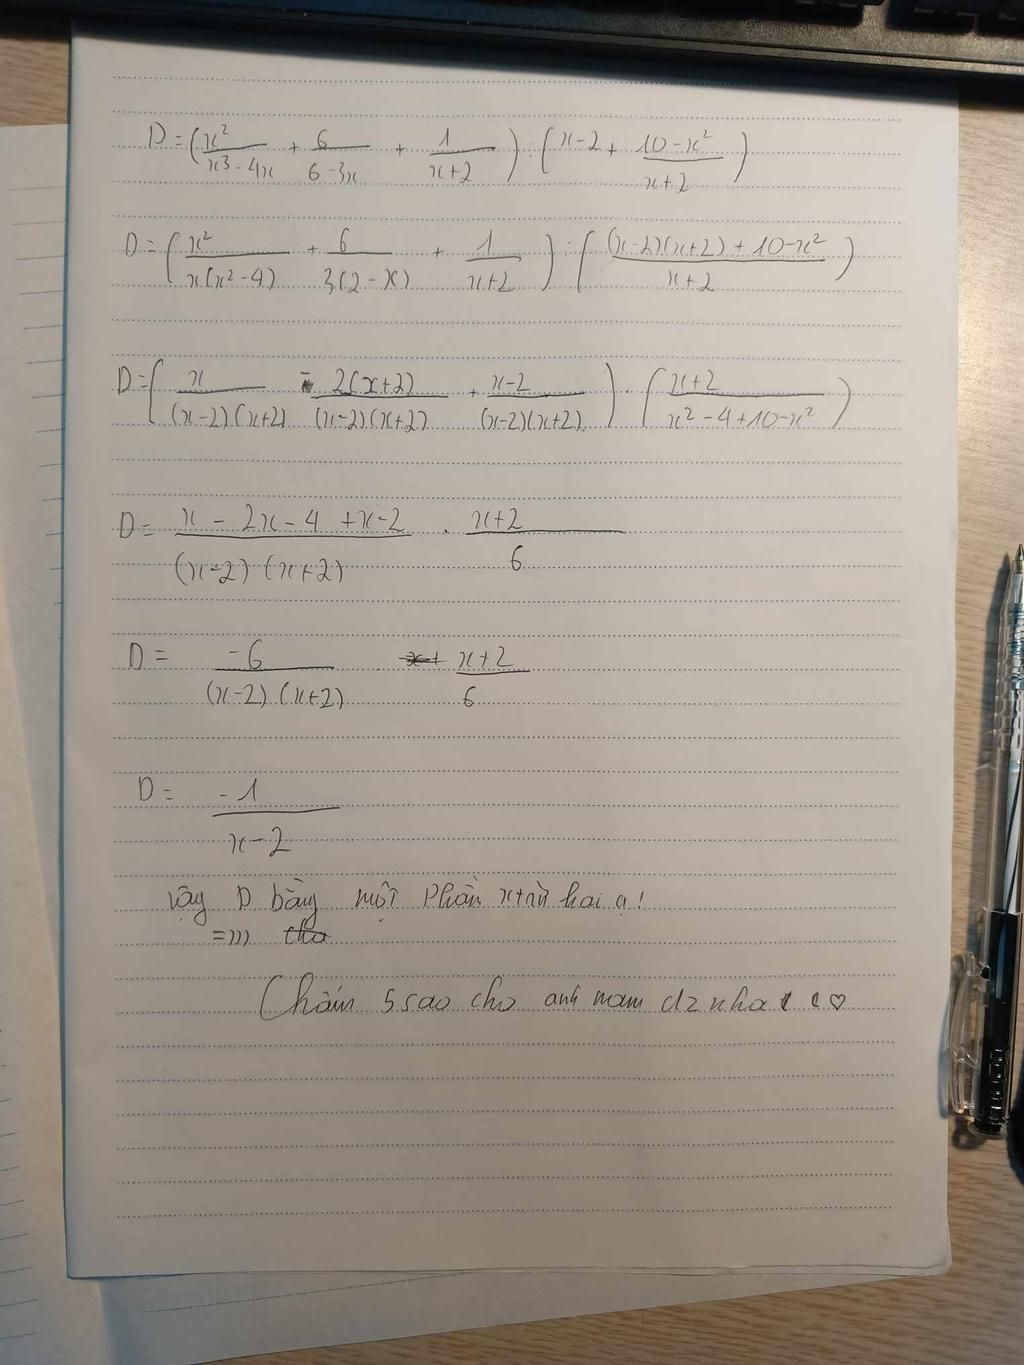 D = ( x²/(x³ - 4x) + 6/(6 - 3x) + 1/(x+2) ) : ( x - 2 + (10 - x²)/(x+2) )
D = ( x²/(x(x² - 4)) + 6/(3(2 - x)) + 1/(x+2) ) : ( ((x-2)(x+2) + 10 - x²)/(x+2) )
D = ( x/((x-2)(x+2)) - 2(x+2)/((x-2)(x+2)) + (x-2)/((x-2)(x+2)) ) . ( (x+2)/(x² - 4 + 10 - x²) )
D = (x - 2x - 4 + x - 2)/((x-2)(x+2)) . (x+2)/6
D = -6/((x-2)(x+2)) (x+2)/6
D = -1/(x-2)
Vậy D bằng một phần x trừ hai ạ!
=)))
Chấm 5 sao cho anh nam dz nha ♡